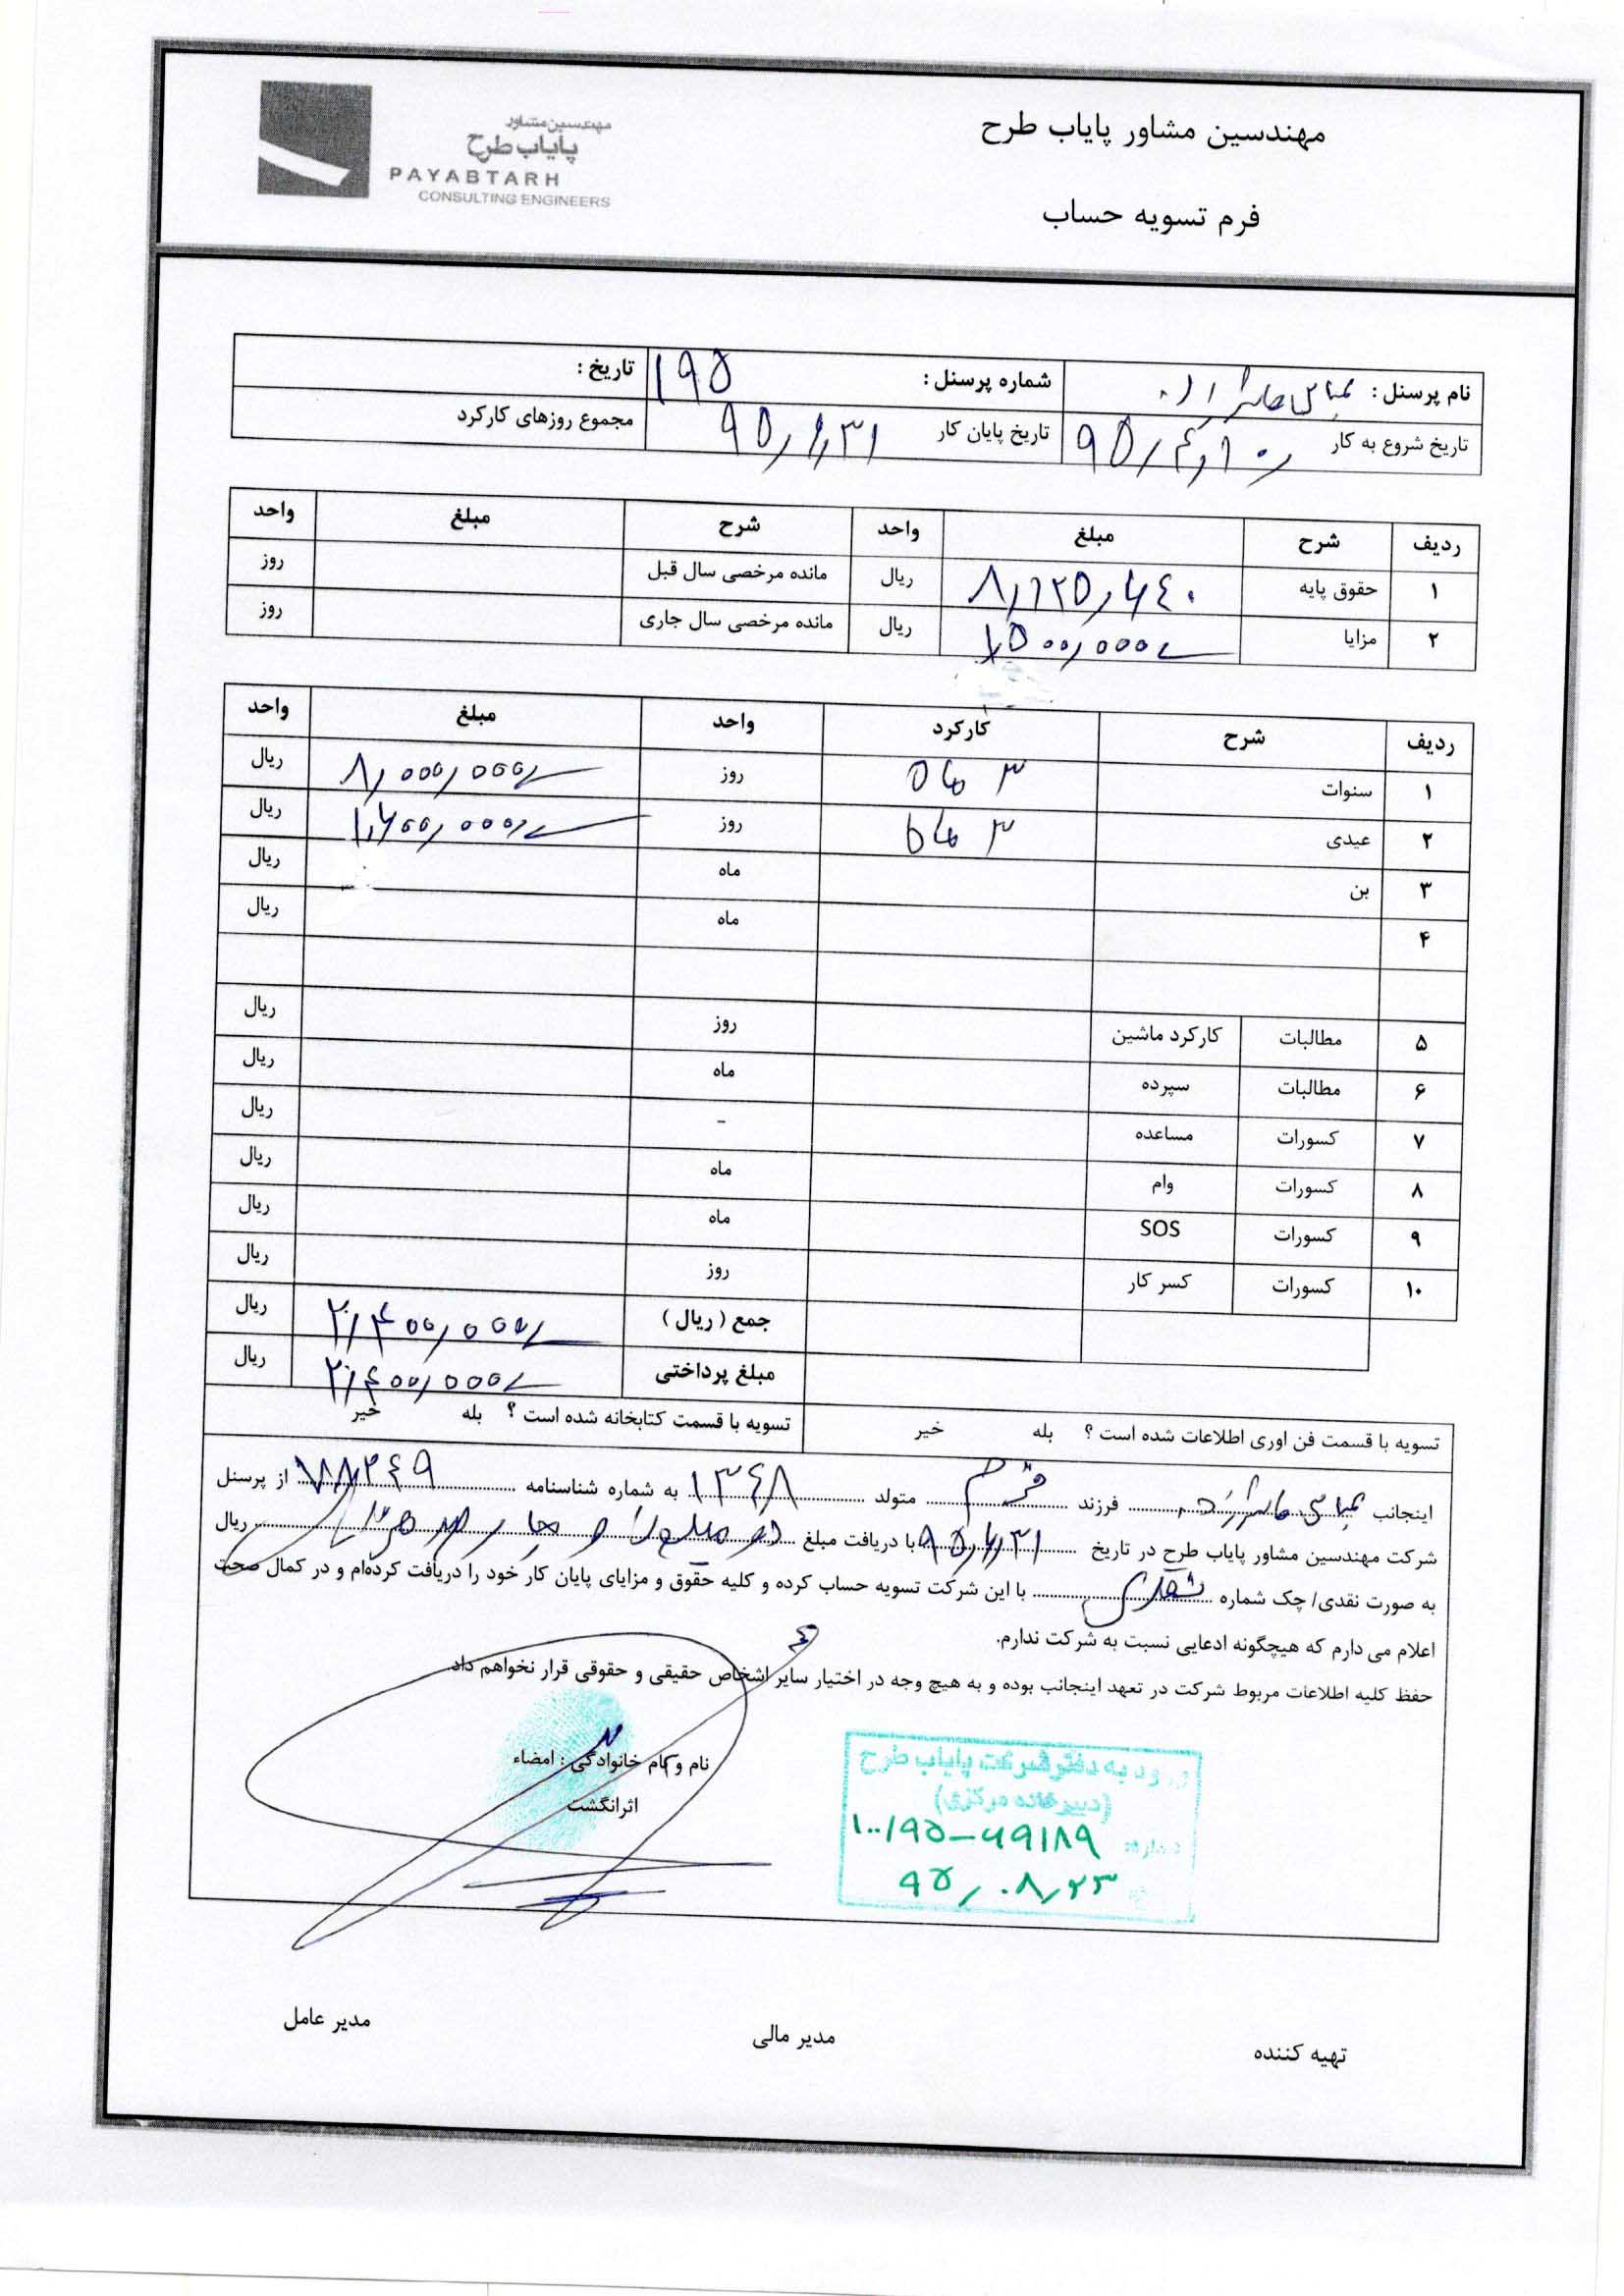 مهندسین مشاور پایاب طرح
مهندسین مشاور
پایاب طرح
PAYABTARH
CONSULTING ENGINEERS
فرم تسویه حساب
نام پرسنل : عباس شماره پرسنل : ۱۹۵ تاریخ :
تاریخ شروع به کار ۹۵٫۴٫۱۰ تاریخ پایان کار ۹۵٫۶٫۳۱ مجموع روزهای کارکرد
ردیف شرح مبلغ واحد شرح مبلغ واحد
۱ حقوق پایه ۸٫۱۲۵٫۶۴۰ ریال مانده مرخصی سال قبل روز
۲ مزایا ۱٫۵۰۰٫۰۰۰ ریال مانده مرخصی سال جاری روز
ردیف شرح کارکرد واحد مبلغ واحد
۱ سنوات ۳ ماه روز ۸٫۰۰۰٫۰۰۰ ریال
۲ عیدی ۳ ماه روز ۱٫۶۰۰٫۰۰۰ ریال
۳ بن ماه ریال
۴ ماه ریال
۵ مطالبات کارکرد ماشین روز ریال
۶ مطالبات سپرده ماه ریال
۷ کسورات مساعده - ریال
۸ کسورات وام ماه ریال
۹ کسورات SOS ماه ریال
۱۰ کسورات کسر کار روز ریال
جمع ( ریال ) ۲٫۴۰۰٫۰۰۰ ریال
مبلغ پرداختی ۲٫۴۰۰٫۰۰۰ ریال
تسویه با قسمت فن اوری اطلاعات شده است ؟ بله خیر تسویه با قسمت کتابخانه شده است ؟ بله خیر
اینجانب عباس فرزند متولد ۱۳۴۸ به شماره شناسنامه ۷۸۲۴۹ از پرسنل
شرکت مهندسین مشاور پایاب طرح در تاریخ ۹۵٫۶٫۳۱ با دریافت مبلغ دو میلیون و چهارصد هزار ریال
به صورت نقدی/ چک شماره با این شرکت تسویه حساب کرده و کلیه حقوق و مزایای پایان کار خود را دریافت کرده‌ام و در کمال صحت
اعلام می دارم که هیچگونه ادعایی نسبت به شرکت ندارم.
حفظ کلیه اطلاعات مربوط شرکت در تعهد اینجانب بوده و به هیچ وجه در اختیار سایر اشخاص حقیقی و حقوقی قرار نخواهم داد
نام و نام خانوادگی : امضاء
اثرانگشت
ورود به دفتر شرکت پایاب طرح
(دبیرخانه مرکزی)
شماره: ۱۰۰/۹۵-۶۹۱۸۹
۹۵٫۰۸٫۲۳
تهیه کننده مدیر مالی مدیر عامل